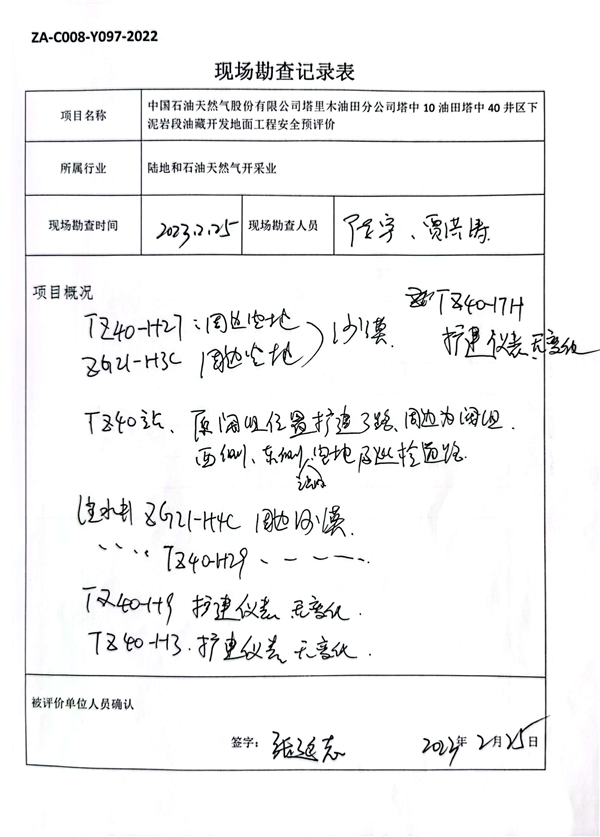 ZA-C008-Y097-2022
现场勘查记录表
项目名称
中国石油天然气股份有限公司塔里木油田分公司塔中 10 油田塔中 40 井区下
泥岩段油藏开发地面工程安全预评价
所属行业
陆地和石油天然气开采业
现场勘查时间
2023.2.25
现场勘查人员
贾洪涛
项目概况
TZ40-17H
扩建仪表 无变化
TZ40-H27：周边空地
ZG21-H3C 周边空地
沙漠.
TZ40站、原阀组位置扩建了路、周边为阀组.
西侧、东侧空地及巡检道路.
注水井 ZG21-H4C 周边沙漠
TZ40-H29
TZ40-H9 扩建仪表 无变化.
TZ40-H3.扩建仪表 无变化.
被评价单位人员确认
签字：
2023年 2月25日